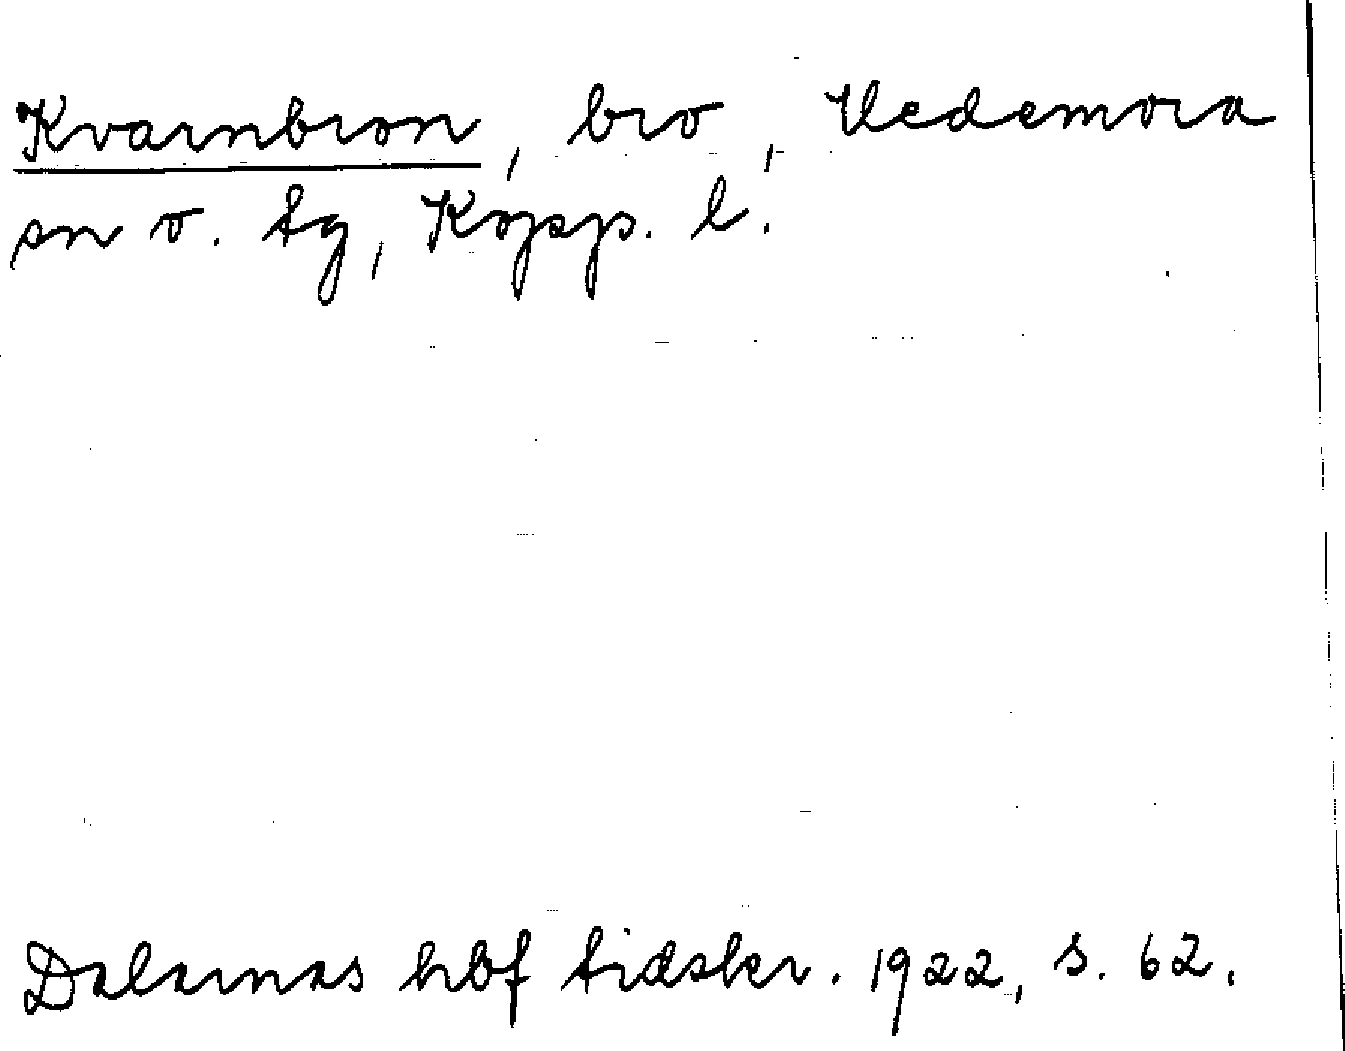 Kvarnbron, bro, Vedemora
sn o. tg, Kopp. l.
Dalarnas hbf tidskr. 1922, s. 62.